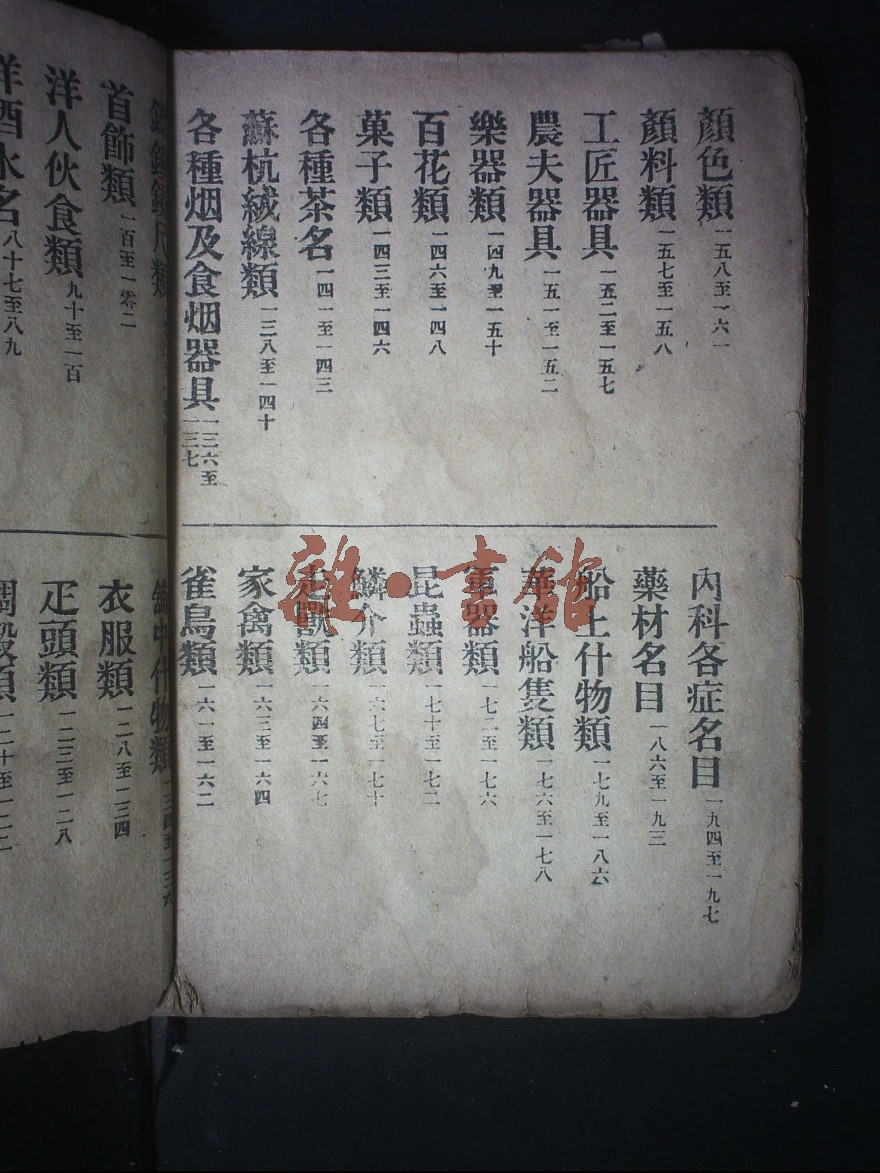 洋酒水名八十七至八九
洋人伙食類九十至一百
首飾類一百至一零二
疋頭類一二三至一二八
衣服類一二八至二三四
舖中什物類
各種烟及食烟器具一三六至一三七
蘇杭絨線類一三八至一四十
各種茶名一四一至一四三
菓子類一四三至一四六
百花類一四六至一四八
樂器類一四九至一五十
農夫器具一五一至一五二
工匠器具一五二至一五七
顏料類一五七至一五八
顏色類一五八至一六一
雀鳥類一六一至一六二
家禽類一六三至一六四
走獸類一六四至一六七
鱗介類一六七至一七十
昆蟲類一七十至一七二
軍器類一七二至一七六
華洋船隻類一七六至一七八
船上什物類一七九至一八六
藥材名目一八六至一九三
內科各症名目一九四至一九七
雜·書館